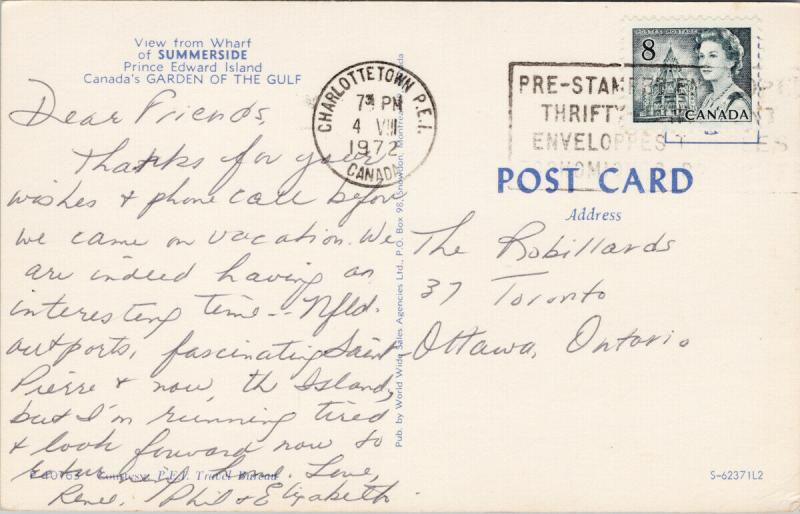 View from Wharf
of SUMMERSIDE
Prince Edward Island
Canada's GARDEN OF THE GULF
Dear Friends,
Thanks for your
wishes & phone call before
we came on vacation. We
are indeed having an
interesting time -- Nfld.
outports, fascinating Saint
Pierre & now, th Island,
but I'm running tired
& look forward now to
home. Love,
Renee, Phil & Elizabeth.
Courtesy: P.E.I. Travel Bureau
CHARLOTTETOWN P.E.I.
7 PM
4 VIII
1972
CANADA
Pub. by World Wide Sales Agencies Ltd., P.O. Box 98, Snowdon, Montreal, Canada
PRE-STAMPED
THRIFTY
ENVELOPPES
8
POSTES POSTAGE
CANADA
POST CARD
Address
The Robillards
37 Toronto
Ottawa, Ontario
S-62371L2